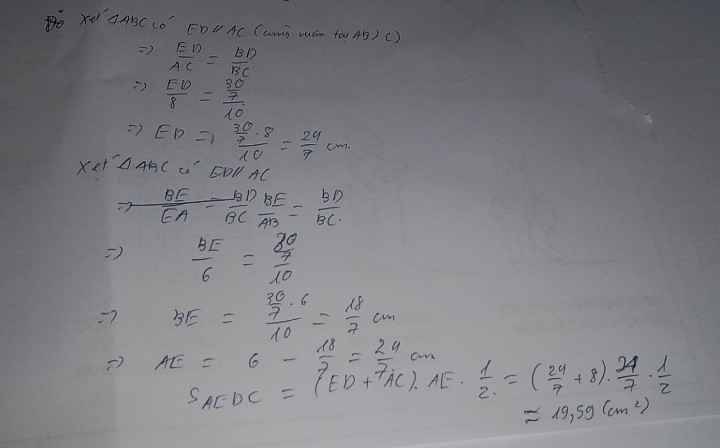 Xét ΔABC có ED // AC (cùng vuông tại AB) C)
=> ED/AC = BD/BC
=> ED/8 = 30/7/10
=> ED = 30/7.8/10 = 24/7 cm.
Xét ΔABC có ED // AC
=> BE/EA = BD/BC BE/AB = BD/BC.
=> BE/6 = 30/7/10
=> BE = 30/7.6/10 = 18/7 cm
=> AE = 6 - 18/7 = 24/7 cm
S AEDC = (ED + AC). AE. 1/2. = (24/7 + 8). 24/7 . 1/2
≈ 19,59 (cm²)